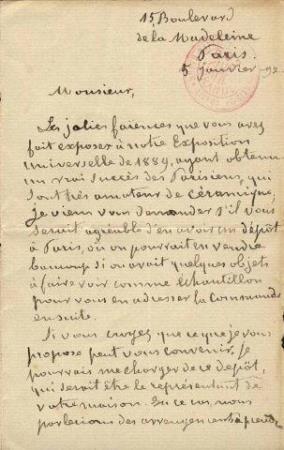 15, Boulevard
de la Madeleine
Paris.
5 janvier - 92
Monsieur,
Les jolies faïences que vous avez
fait exposer à notre Exposition
Universelle de 1889, ayant obtenu
un vrai succès des Parisiens, qui
sont très amateur de céramique,
je viens vous demander s'il vous
serait agréable d'en avoir un dépôt
à Paris, où on pourrait en vendre
beaucoup si on avait quelques objets
à faire voir comme échantillon
pour vous en adresser la Commande
ensuite.
Si vous croyez que ce que je vous
propose peut vous convenir, je
pourrais me charger de ce dépôt,
qui serait être le représentant de
votre maison. En ce cas, nous
parlerions des arrangements à prendre